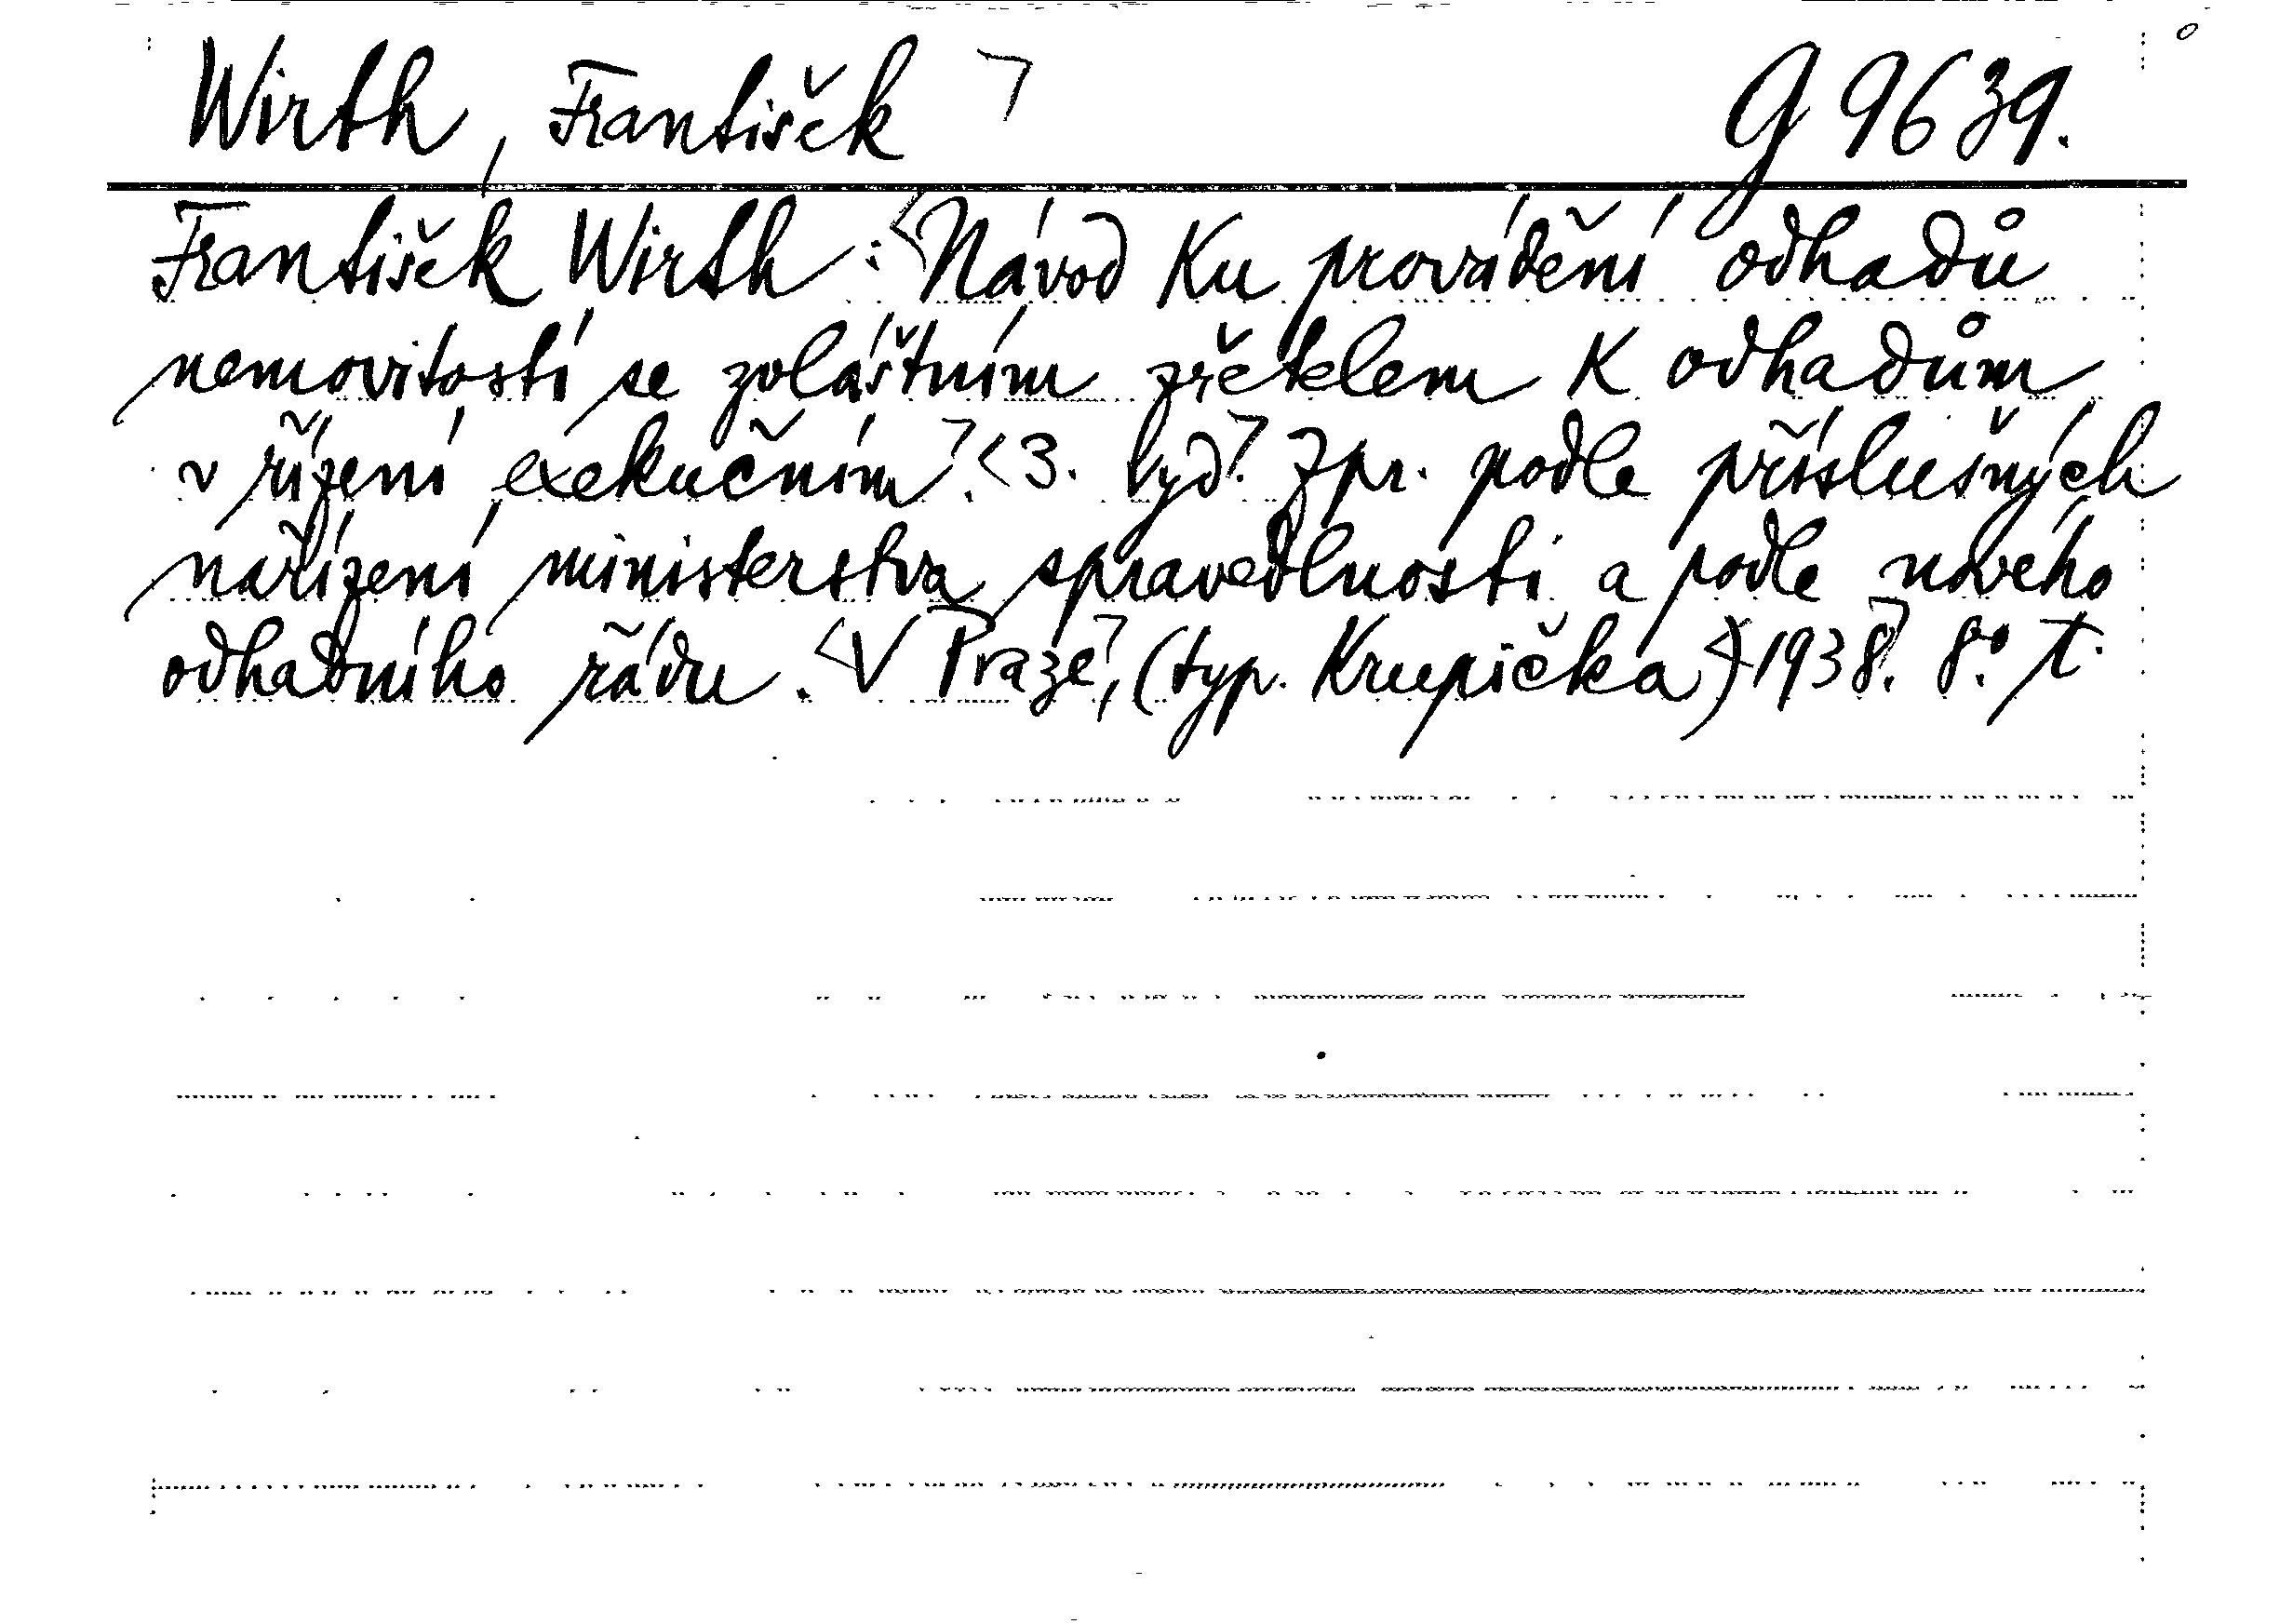 Wirth, František G 9639.
František Wirth: Návod ku provádění odhadů
nemovitostí se zvláštním zřetelem k odhadům
v řízení exekučním. 3. vyd. zpr. podle příslušných
nařízení ministerstva spravedlnosti a podle nového
odhadního řádu. V Praze, (typ. Krupička) 1938. 8° t.